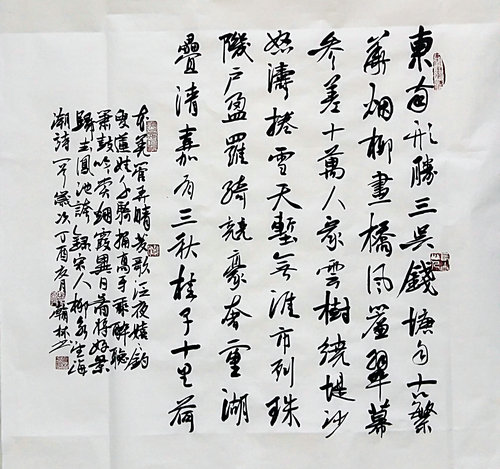 東南形勝三吳錢塘自古繁
華烟柳畫橋風簾翠幕
參差十萬人家雲樹繞堤沙
怒濤捲雪天塹無涯市列珠
璣户盈羅綺競豪奢重湖
疊清嘉有三秋桂子十里荷
花羌管弄晴菱歌泛夜嬉釣
叟蓮娃千騎擁高牙乘醉聽
簫鼓吟賞烟霞異日圖將好景
歸去鳳池誇錄宋人柳永望海
潮詩一首歲次丁酉月翰林